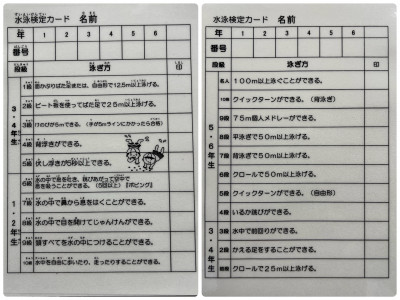 水泳検定カード 名前
年 1 2 3 4 5 6
番号
段級 泳ぎ方 印
3・4年生
1級 面かぶりばた足または、自由形で12.5m以上泳げる。
2級 ビート板を使ってばた足で25m以上泳げる。
3級 けのびが5mできる。(手が5mラインにかかったら合格)
4級 背浮きができる。
5級 伏し浮きが5秒以上できる。
1・2年生
6級 水中で息を吐き、跳びあがって空中で
息を吸うことができる。(5回以上)【ボビング】
7級 水の中で鼻から息をはくことができる。
8級 水の中で目を開けてじゃんけんができる。
9級 頭すべてを水の中につけることができる。
10級 水中を自由に歩いたり、走ったりすることができる。
水泳検定カード 名前
年 1 2 3 4 5 6
番号
段級 泳ぎ方 印
5・6年生
名人 100m以上泳ぐことができる。
10段 クイックターンができる。(背泳ぎ)
9段 75m個人メドレーができる。
8段 平泳ぎで50m以上泳げる。
7段 背泳ぎで50m以上泳げる。
6段 クロールで50m以上泳げる。
5段 クイックターンができる。(自由形)
4段 いるか跳びができる。
3・4年生
3段 水中で前回りができる。
2段 かえる足をすることができる。
初段 クロールで25m以上泳げる。